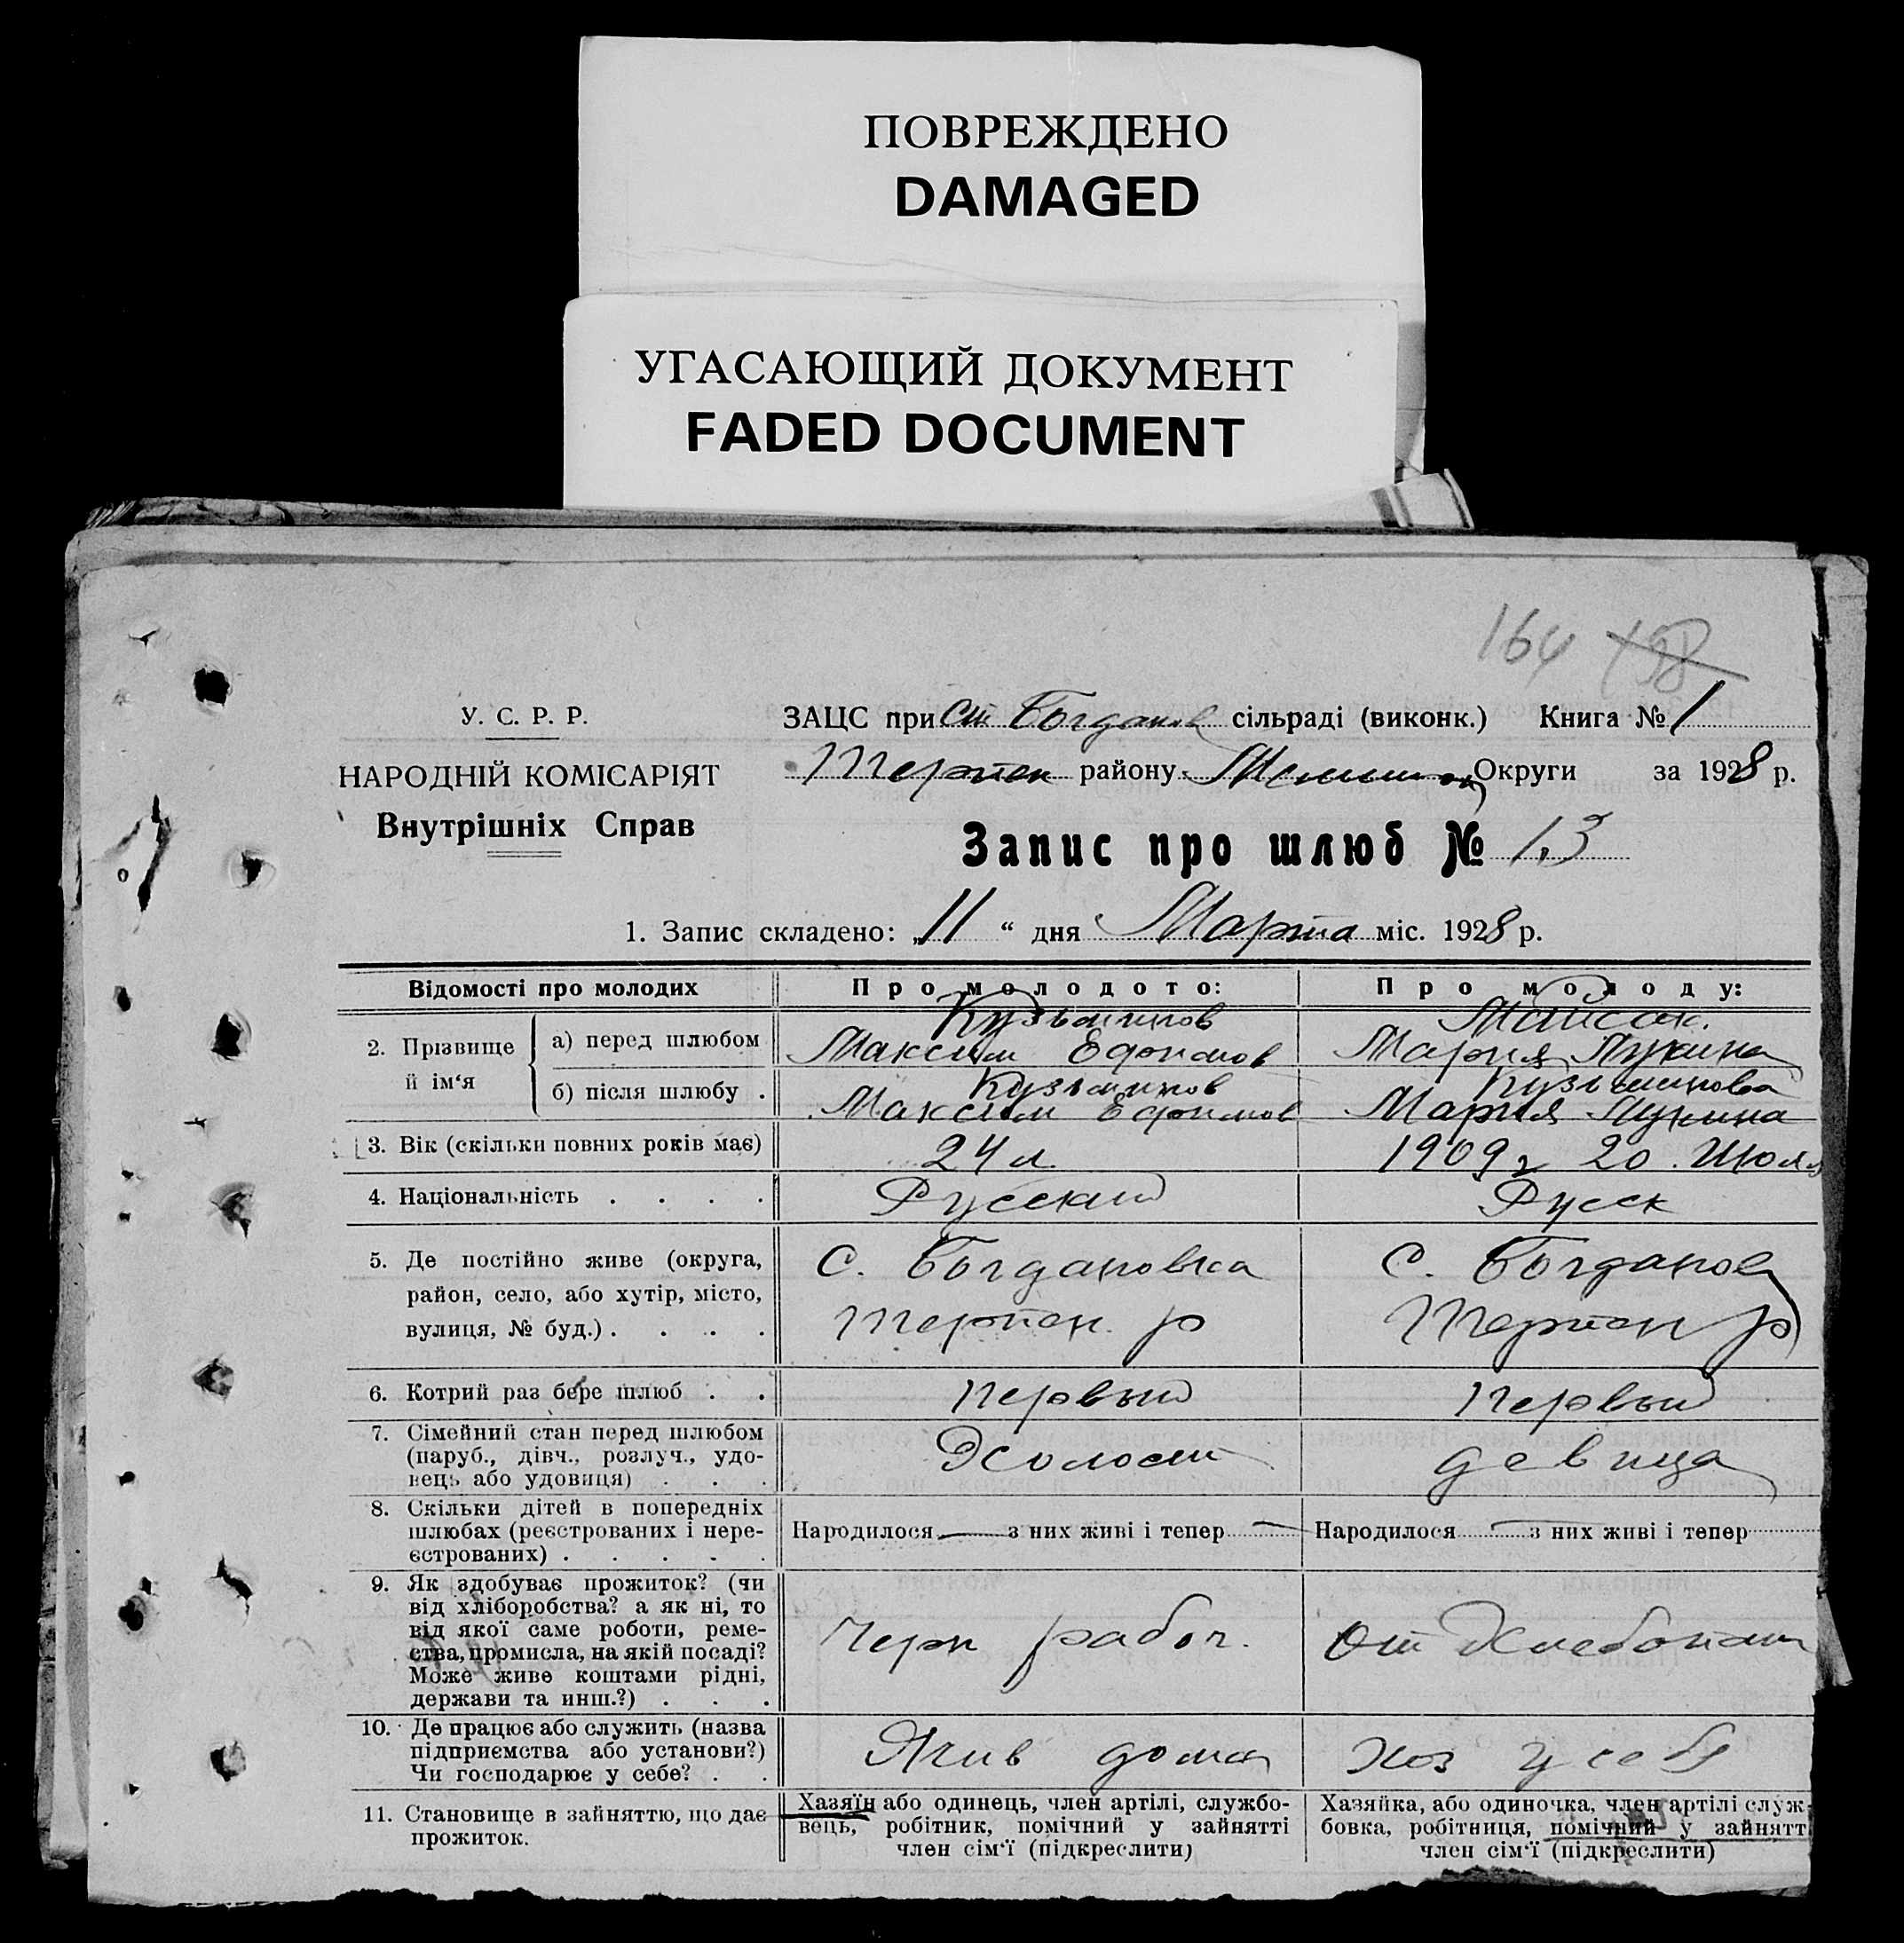 ПОВРЕЖДЕНО
DAMAGED
УГАСАЮЩИЙ ДОКУМЕНТ
FADED DOCUMENT
164 158
У. С. Р. Р.
НАРОДНІЙ КОМІСАРІЯТ
Внутрішніх Справ
ЗАЦС при Богданов сільраді (виконк.) Книга № 1
Терпен району Округи за 1928 р.
Запис про шлюб № 13
1. Запис складено: „11“ дня Марта міс. 1928 р.
Відомості про молодих
Про молодого:
Про молоду:
2. Прізвище й ім‘я
а) перед шлюбом
Кузьминов
Максим Ефимов
Мария Лукина
б) після шлюбу .
Кузьминов
Максим Ефимов
Кузьминова
Мария Лукина
3. Вік (скільки повних років має)
24 л
1909 г 20 Июля
4. Національність . . . .
Русский
Русск
5. Де постійно живе (округа,
район, село, або хутір, місто,
вулиця, № буд.) . . . .
С. Богдановка
Терпен. р
С. Богданов
Терпен р
6. Котрий раз бере шлюб . .
первый
первый
7. Сімейний стан перед шлюбом
(паруб., дівч., розлуч., удо-
вець або удовиця) . . .
Холост
девица
8. Скільки дітей в попередніх
шлюбах (реєстрованих і нере-
єстрованих) . . . . .
Народилося — з них живі і тепер —
Народилося — з них живі і тепер
9. Як здобуває прожиток? (чи
від хліборобства? а як ні, то
від якої саме роботи, реме-
ства, промисла, на якій посаді?
Може живе коштами рідні,
держави та инш.?) . . .
Черн рабоч.
От Хлебопаш
10. Де працює або служить (назва
підприємства або установи?)
Чи господарює у себе? . .
дома
Хоз у себя
11. Становище в зайняттю, що дає
прожиток.
Хазяїн або одинець, член артілі, службо-
вець, робітник, помічний у зайнятті
член сім‘ї (підкреслити)
Хазяйка, або одиночка, член артілі служ-
бовка, робітниця, помічний у зайнятт
член сім‘ї (підкреслити)